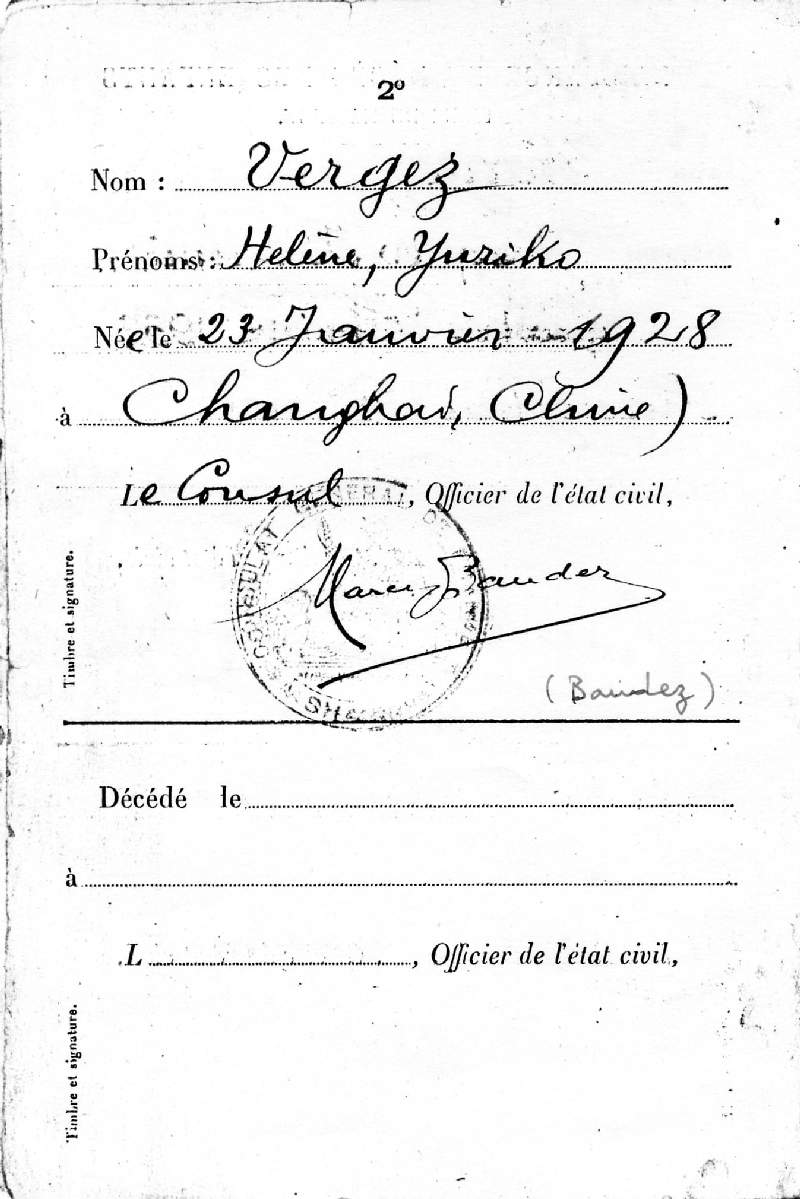 2º
Nom : Vergez
Prénoms : Helène, Yuriko
Née le 23 Janvier 1928
à Changhai, Chine)
Le Consul, Officier de l'état civil,
CONSULAT GENERAL DE
SH
Timbre et signature.
Marcy Baudez
(Baudez)
Décédé le
à
L, Officier de l'état civil,
Timbre et signature.